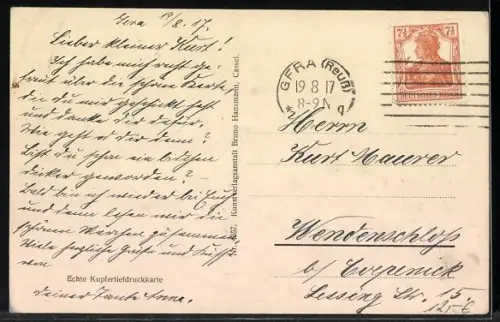 Gera 19/8. 17.
Lieber kleiner Kurt!
Ich habe mich recht ge-
freut über die schöne Karte,
die du mir geschickt hast
und danke dir dafür.
Wie geht es dir denn?
Bist du schon ein bißchen
dicker geworden? –
Bald bin ich wieder bei Euch
und dann lesen wir die
schönen Märchen zusammen.
Viele herzliche Grüße und Küsse
von
Echte Kupfertiefdruckkarte
deiner Tante Anna.
Kunstverlagsanstalt Bruno Hansmann, Cassel.
GERA (Reuß)
19 8 17
8-9 N
7½ 7½
DEUTSCHES REICH
Herrn
Kurt Maurer
Wendenschloß
b/ Coepenick
Lessing Str. 15.
12,- €